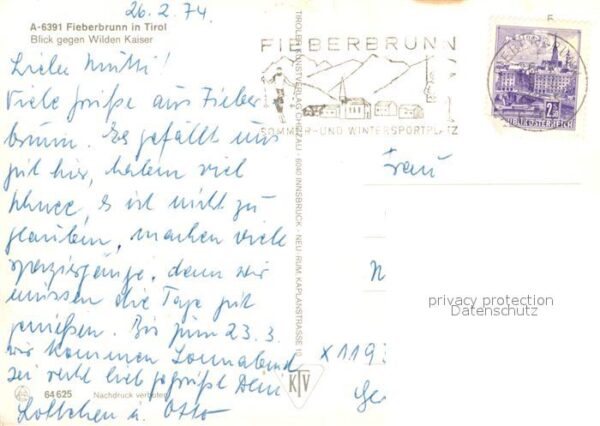 26.2.74.
A-6391 Fieberbrunn in Tirol
Blick gegen Wilden Kaiser
Liebe Mutti!
Viele Grüße aus Fieber
brunn. Es gefällt uns
gut hier, haben viel
Schnee, es ist nicht zu
glauben, machen viele
Spaziergänge, denn wir
müssen die Tage gut
genießen. Bis zum 23.3.
wir kommen Sonnabend
sei recht lieb gegrüßt Deine
Lottchen u. Otto
64 625 Nachdruck verboten
TIROLER KUNSTVERLAG CHIZZALI · 6040 INNSBRUCK - NEU-RUM, KAPLANSTRASSE 10
KTV
FIEBERBRUNN
SOMMER-UND WINTERSPORTPLATZ
2.50
REPUBLIK ÖSTERREICH
Frau
N
privacy protection
Datenschutz
X 1193
Ge